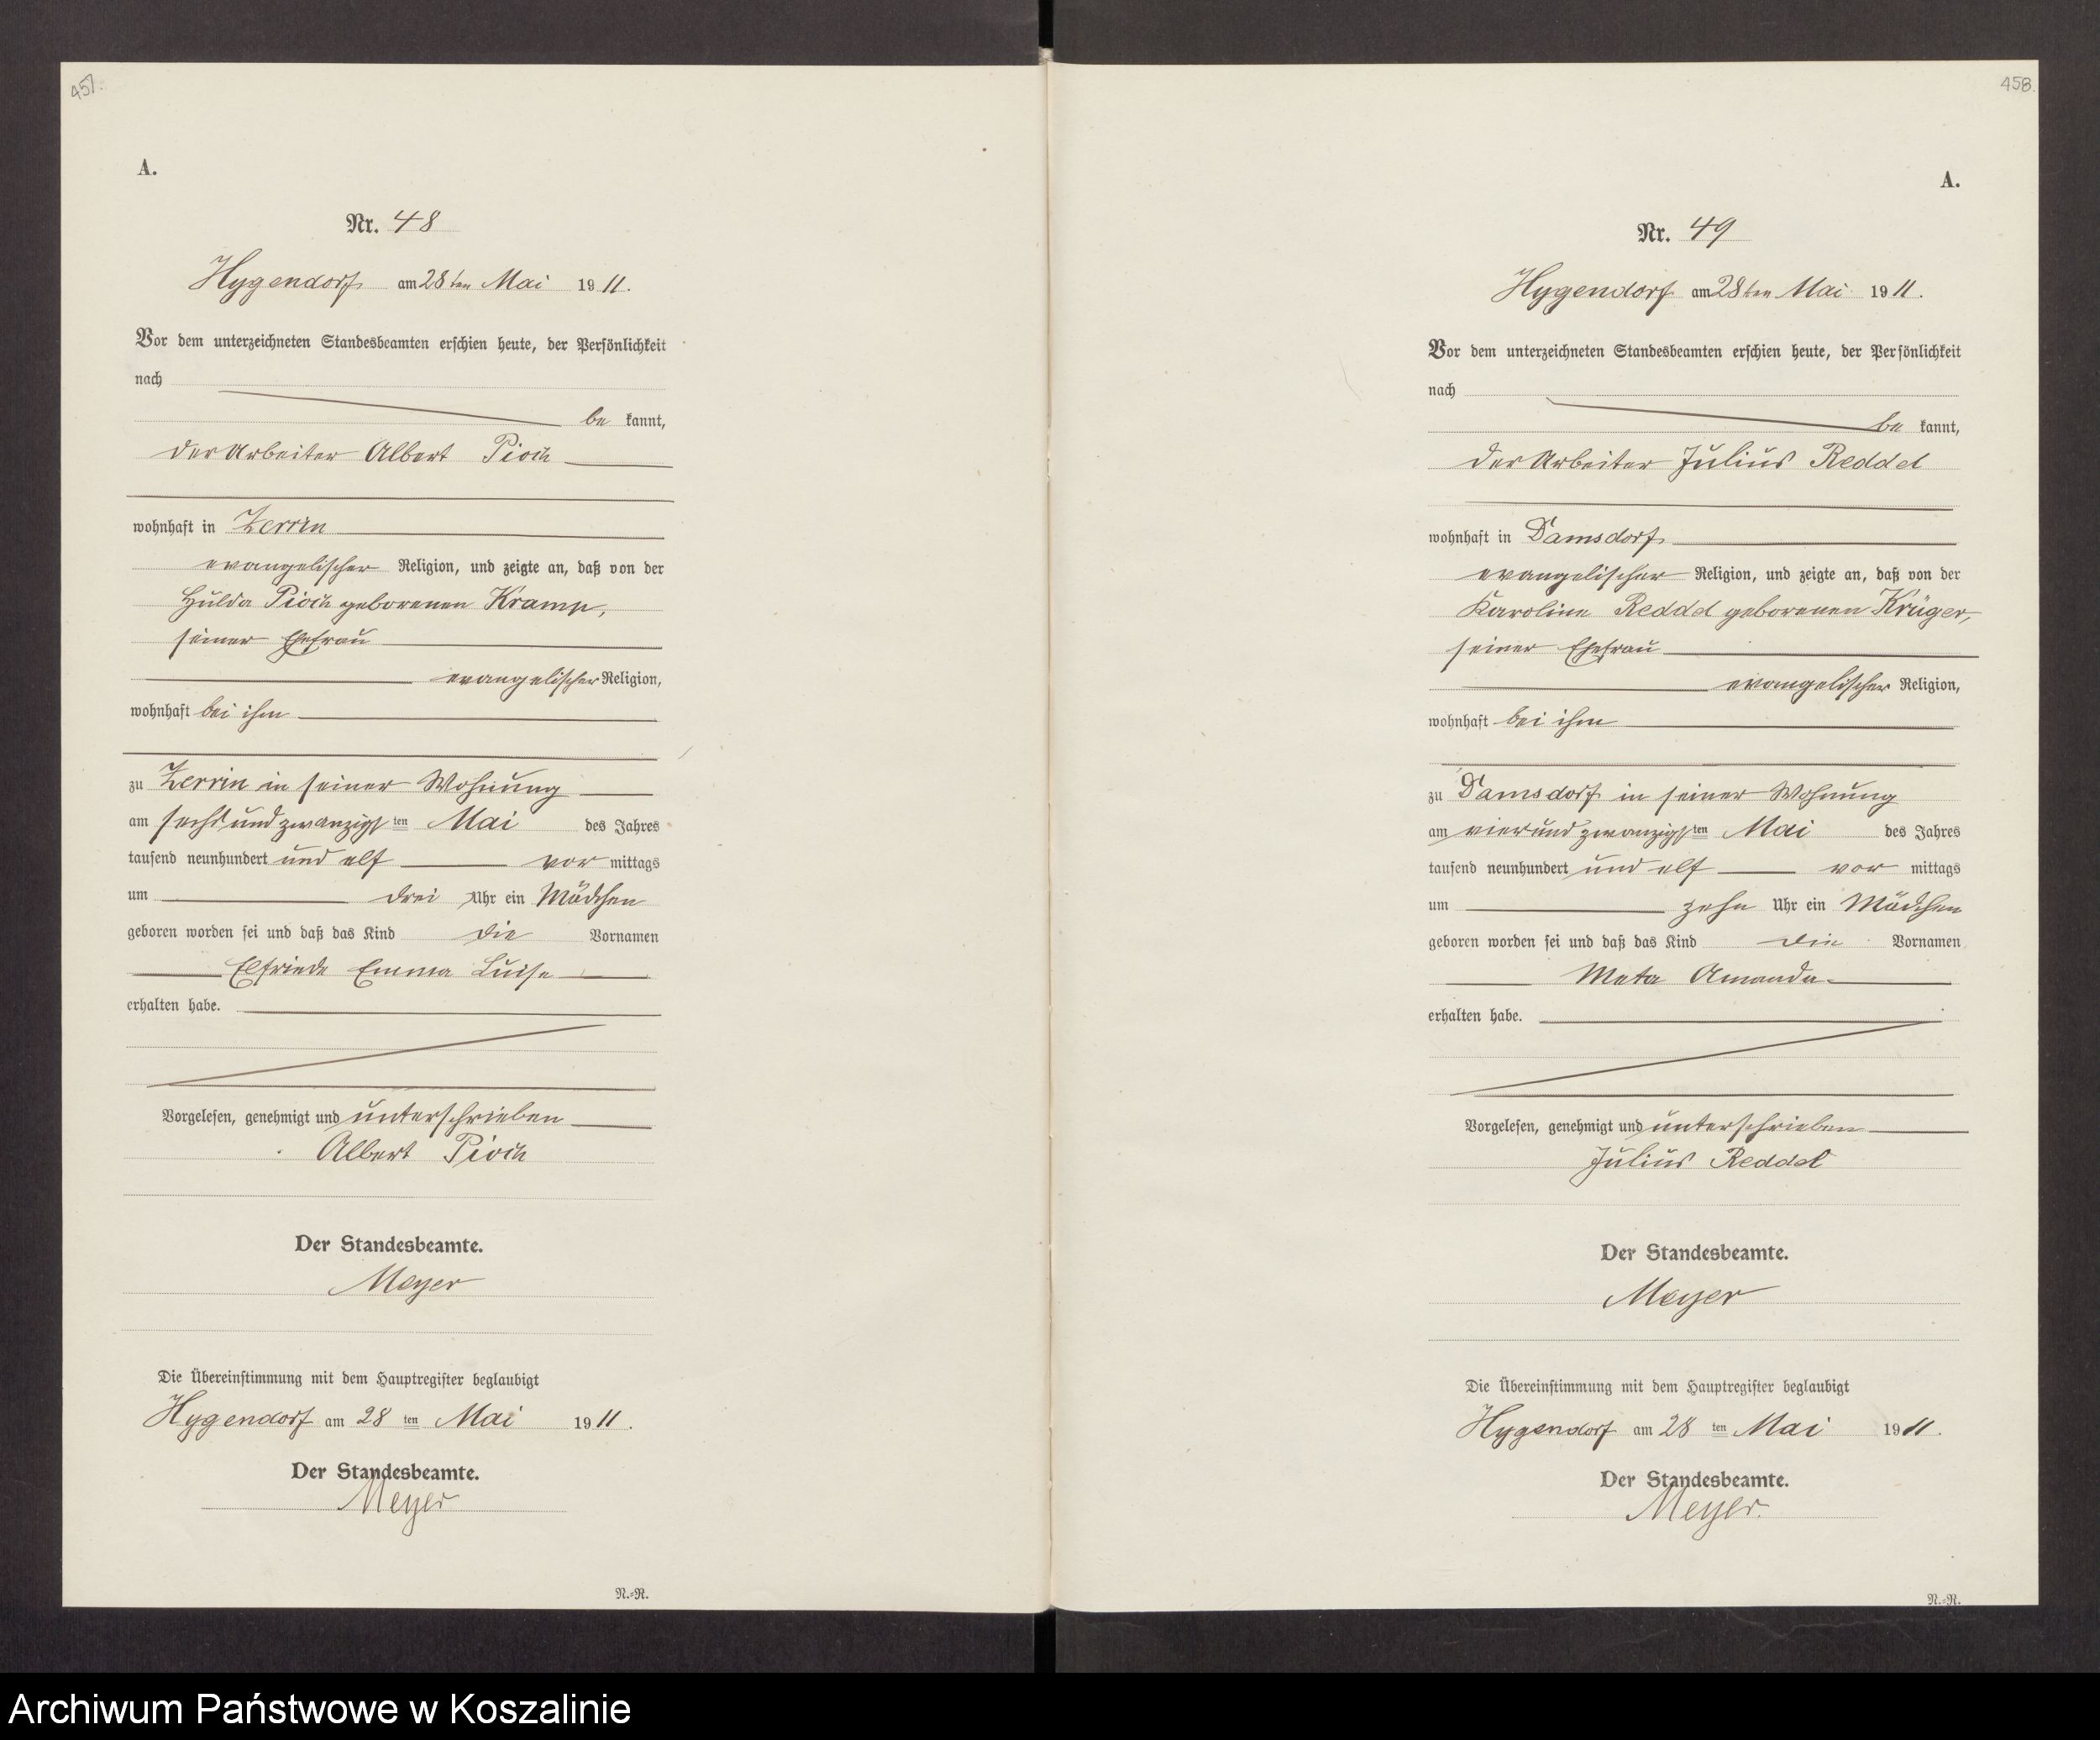 457.
A.
Nr. 48
Hygendorf am 28ten Mai 1911.
Vor dem unterzeichneten Standesbeamten erschien heute, der Persönlichkeit
nach
be kannt,
der Arbeiter Albert Pioch
wohnhaft in Zerrin
evangelischer Religion, und zeigte an, daß von der
Hulda Pioch geborenen Kramp,
seiner Ehefrau
evangelischer Religion,
wohnhaft bei ihm
zu Zerrin in seiner Wohnung
am sechsundzwanzigsten Mai des Jahres
tausend neunhundert und elf vor mittags
um drei Uhr ein Mädchen
geboren worden sei und daß das Kind die Vornamen
Elfriede Emma Luise
erhalten habe.
Vorgelesen, genehmigt und unterschrieben
Albert Pioch
Der Standesbeamte.
Meyer
Die Übereinstimmung mit dem Hauptregister beglaubigt
Hygendorf am 28 ten Mai 1911.
Der Standesbeamte.
Meyer
N.=R.
458.
A.
Nr. 49
Hygendorf am 28ten Mai 1911.
Vor dem unterzeichneten Standesbeamten erschien heute, der Persönlichkeit
nach
be kannt,
der Arbeiter Julius Reddel
wohnhaft in Damsdorf
evangelischer Religion, und zeigte an, daß von der
Karoline Reddel geborenen Krüger,
seiner Ehefrau
evangelischer Religion,
wohnhaft bei ihm
zu Damsdorf in seiner Wohnung
am vierundzwanzigsten Mai des Jahres
tausend neunhundert und elf vor mittags
um zehn Uhr ein Mädchen
geboren worden sei und daß das Kind die Vornamen
Meta Amanda
erhalten habe.
Vorgelesen, genehmigt und unterschrieben
Julius Reddel
Der Standesbeamte.
Meyer
Die Übereinstimmung mit dem Hauptregister beglaubigt
Hygendorf am 28 ten Mai 1911.
Der Standesbeamte.
Meyer.
N.=R.
Archiwum Państwowe w Koszalinie